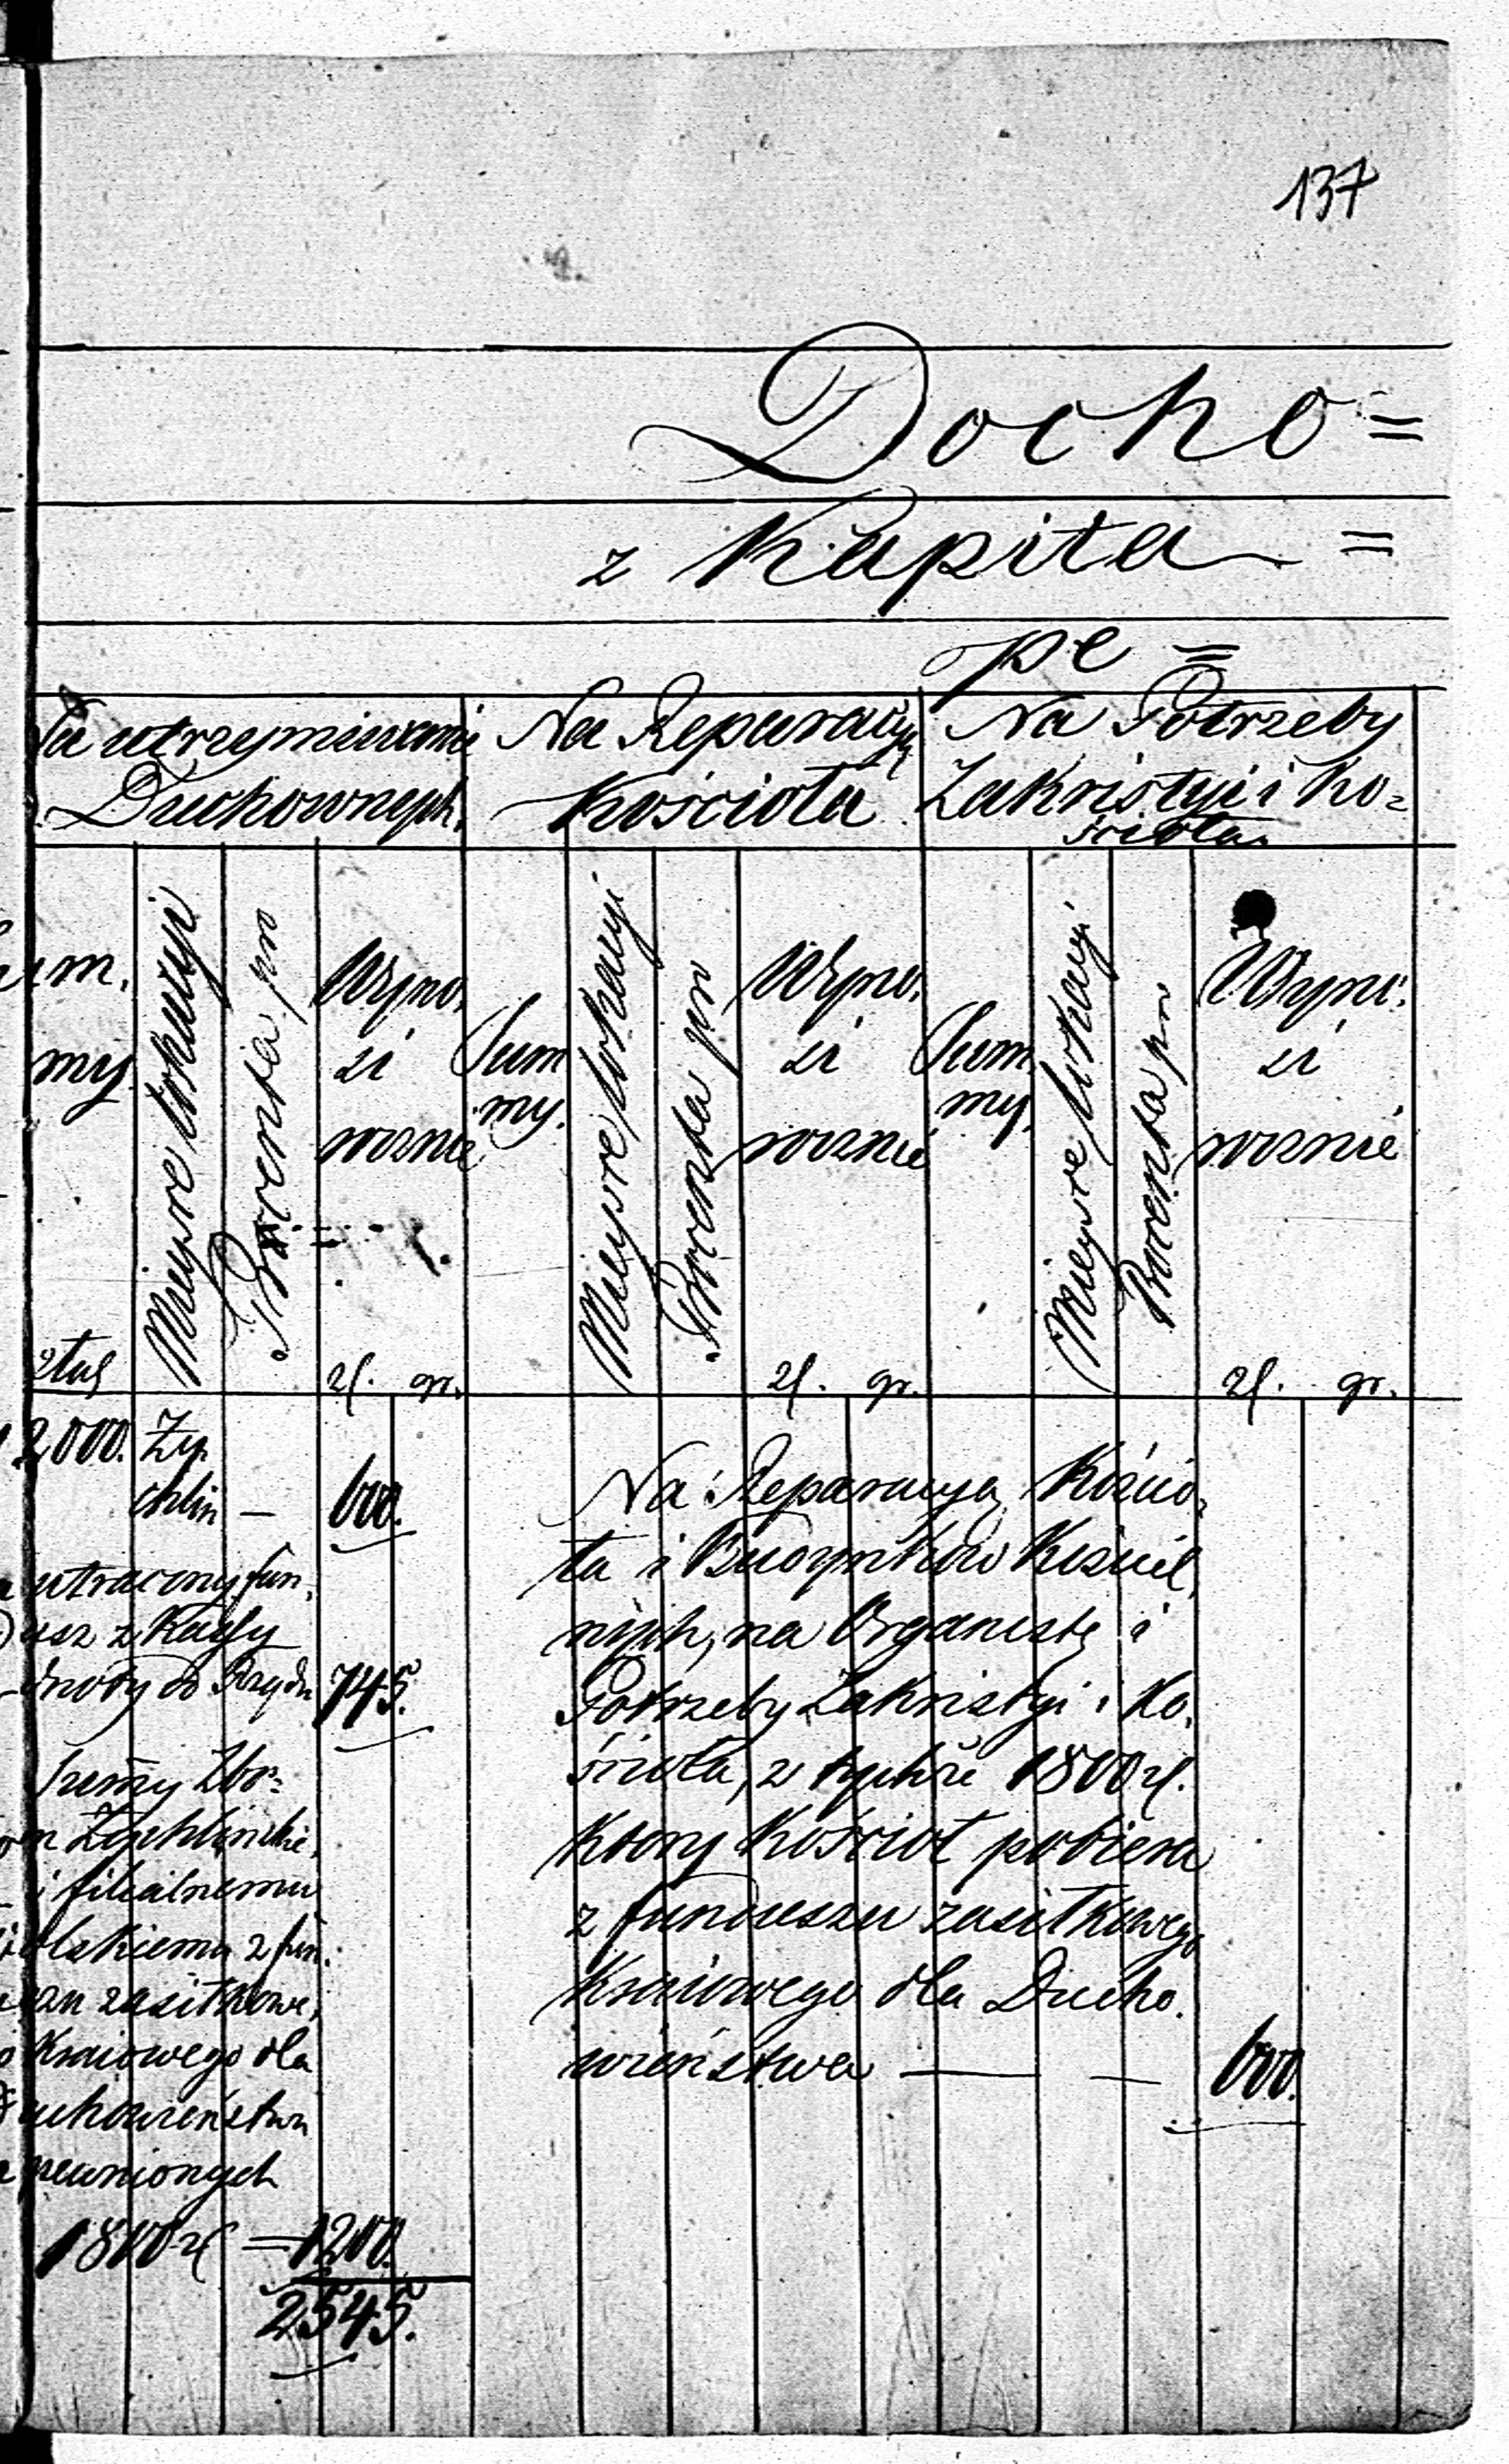 137
Docho=
z Kapita=
pe=
Na utrzymiwanie
Duchownych.
Na Reparacyą
Kościoła
Na Potrzeby
Zakrystyi i Ko=
ścioła.
Sum.
my.
złtus
Mieysce lokacyi
Procenta pro
Wyno.
si
rocznie
zł. gr.
Sum
my.
Mieysce lokacyi
Procenta pro
Wyno.
si
rocznie
zł. gr.
Sum
my.
Mieysce lokacyi
Procenta pro
Wyno.
si
rocznie
zł. gr.
2000. Ży
chlin — 600.
utracony fun.
usz z Kassy
do Rządu 745.
summy Zbo=
Żychlińskie.
i filialnemu
olskiemu z fun.
szu zasiłkowe.
Kraiowego dla
uchowieństwa
pewnionych
1800 zł — 1200.
2545.
Na Reparacyą Kościo=
ła i Budynków Kościel.
nych, na Organistę i
Potrzeby Zakrystyi i Ko.
ścioła, z tychże 1800 zł.
Ktory Kościoł pobiera
z funduszu zasiłkowego
Kraiowego dla Ducho.
wieństwa — — 600.